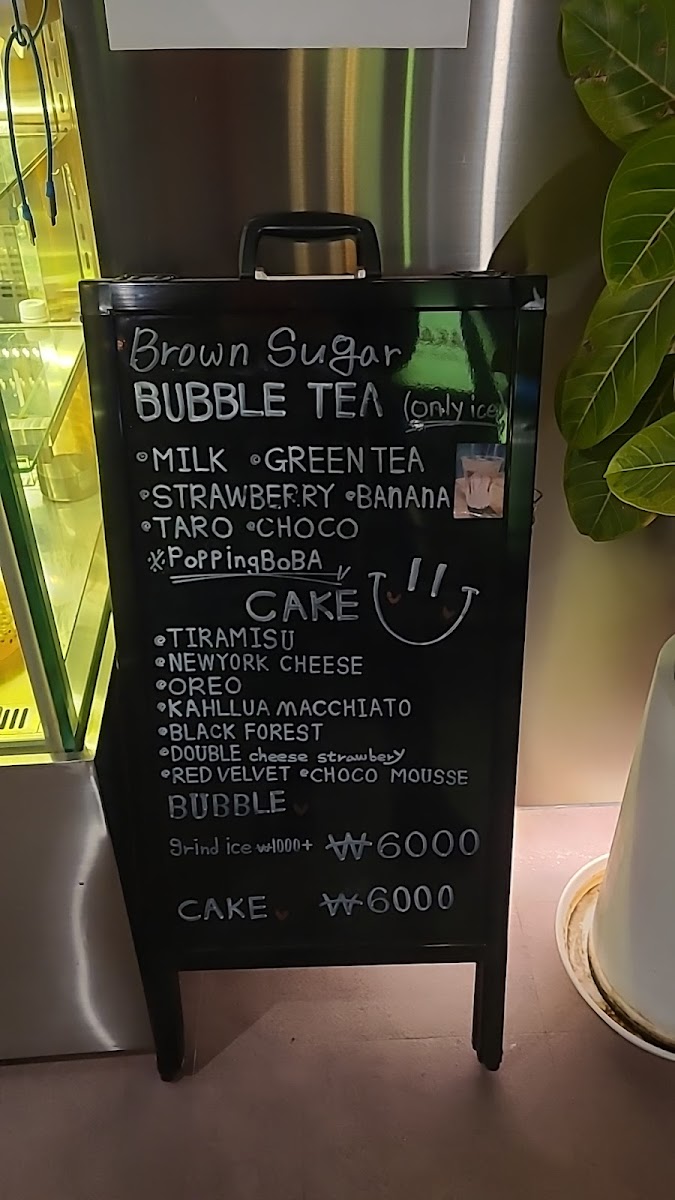 Brown Sugar
BUBBLE TEA (only ice)
•MILK •GREEN TEA
•STRAWBERRY •BANANA
•TARO •CHOCO
※PoppingBoBA
CAKE
•TIRAMISU
•NEWYORK CHEESE
•OREO
•KAHLLUA MACCHIATO
•BLACK FOREST
•DOUBLE cheese strawbery
•RED VELVET •CHOCO MOUSSE
BUBBLE
grind ice ₩1000+ ₩6000
CAKE ₩6000